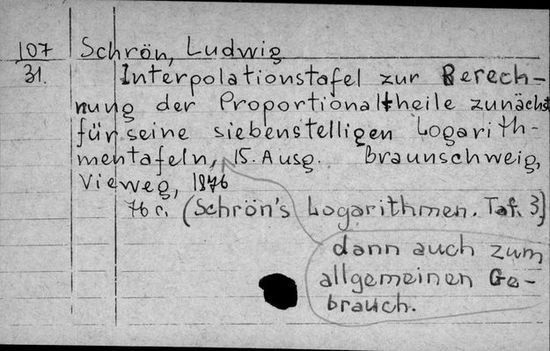 107
31.
Schrön, Ludwig
Interpolationstafel zur Berech-
nung der Proportionaltheile zunächst
für seine siebenstelligen Logarith-
mentafeln, 15. Ausg. Braunschweig,
Vieweg, 1876
76 c. (Schrön's Logarithmen. Taf. 3)
dann auch zum
allgemeinen Ge-
brauch.